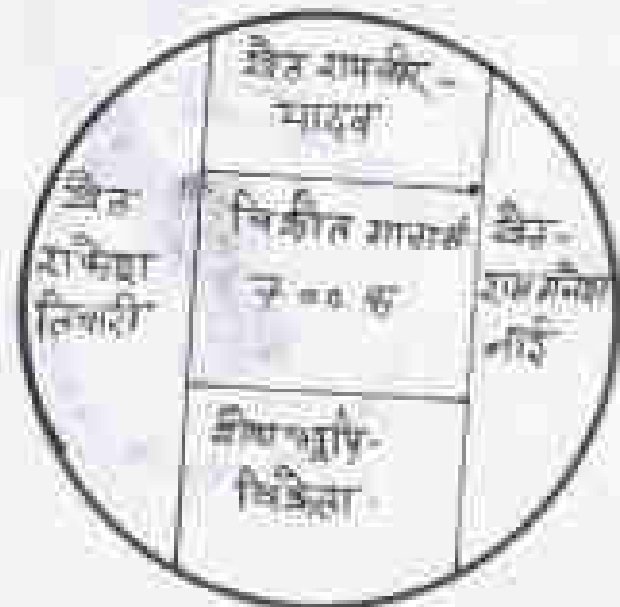 खेत रामवीर-
यादव
खेत
राकेश
तिवारी
विक्रीत आराजी
खेत-
राम गनेश
नाई
शेष भूमि-
विक्रेता